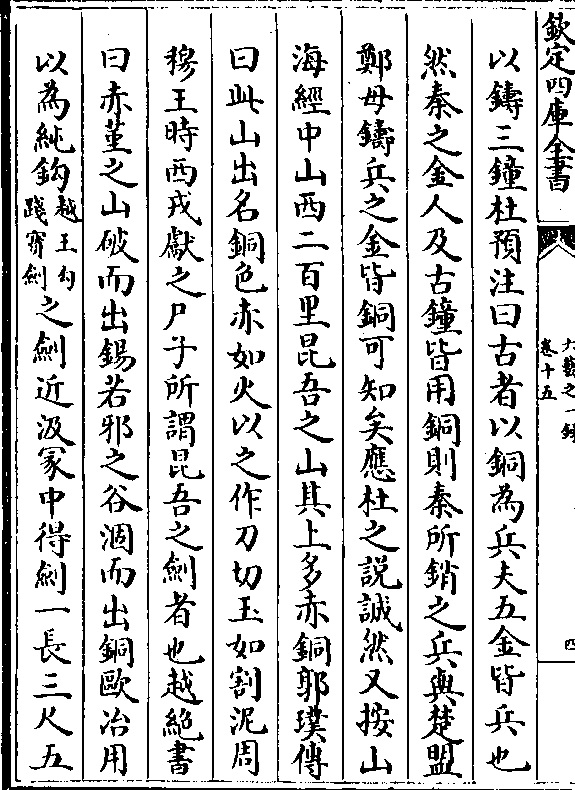 欽定四庫全書
六藝之一錄
卷十五
四
以鑄三鐘杜預注曰古者以銅為兵夫五金皆兵也
然秦之金人及古鐘皆用銅則秦所銷之兵與楚盟
鄭毋鑄兵之金皆銅可知矣應杜之說誠然又按山
海經中山西二百里昆吾之山其上多赤銅郭璞傳
曰此山出名銅色赤如火以之作刀切玉如割泥周
穆王時西戎獻之尸子所謂昆吾之劍者也越絶書
曰赤堇之山破而出錫若邪之谷涸而出銅歐冶用
以為純鈎越王勾踐寳劍之劍近汲冢中得劍一長三尺五